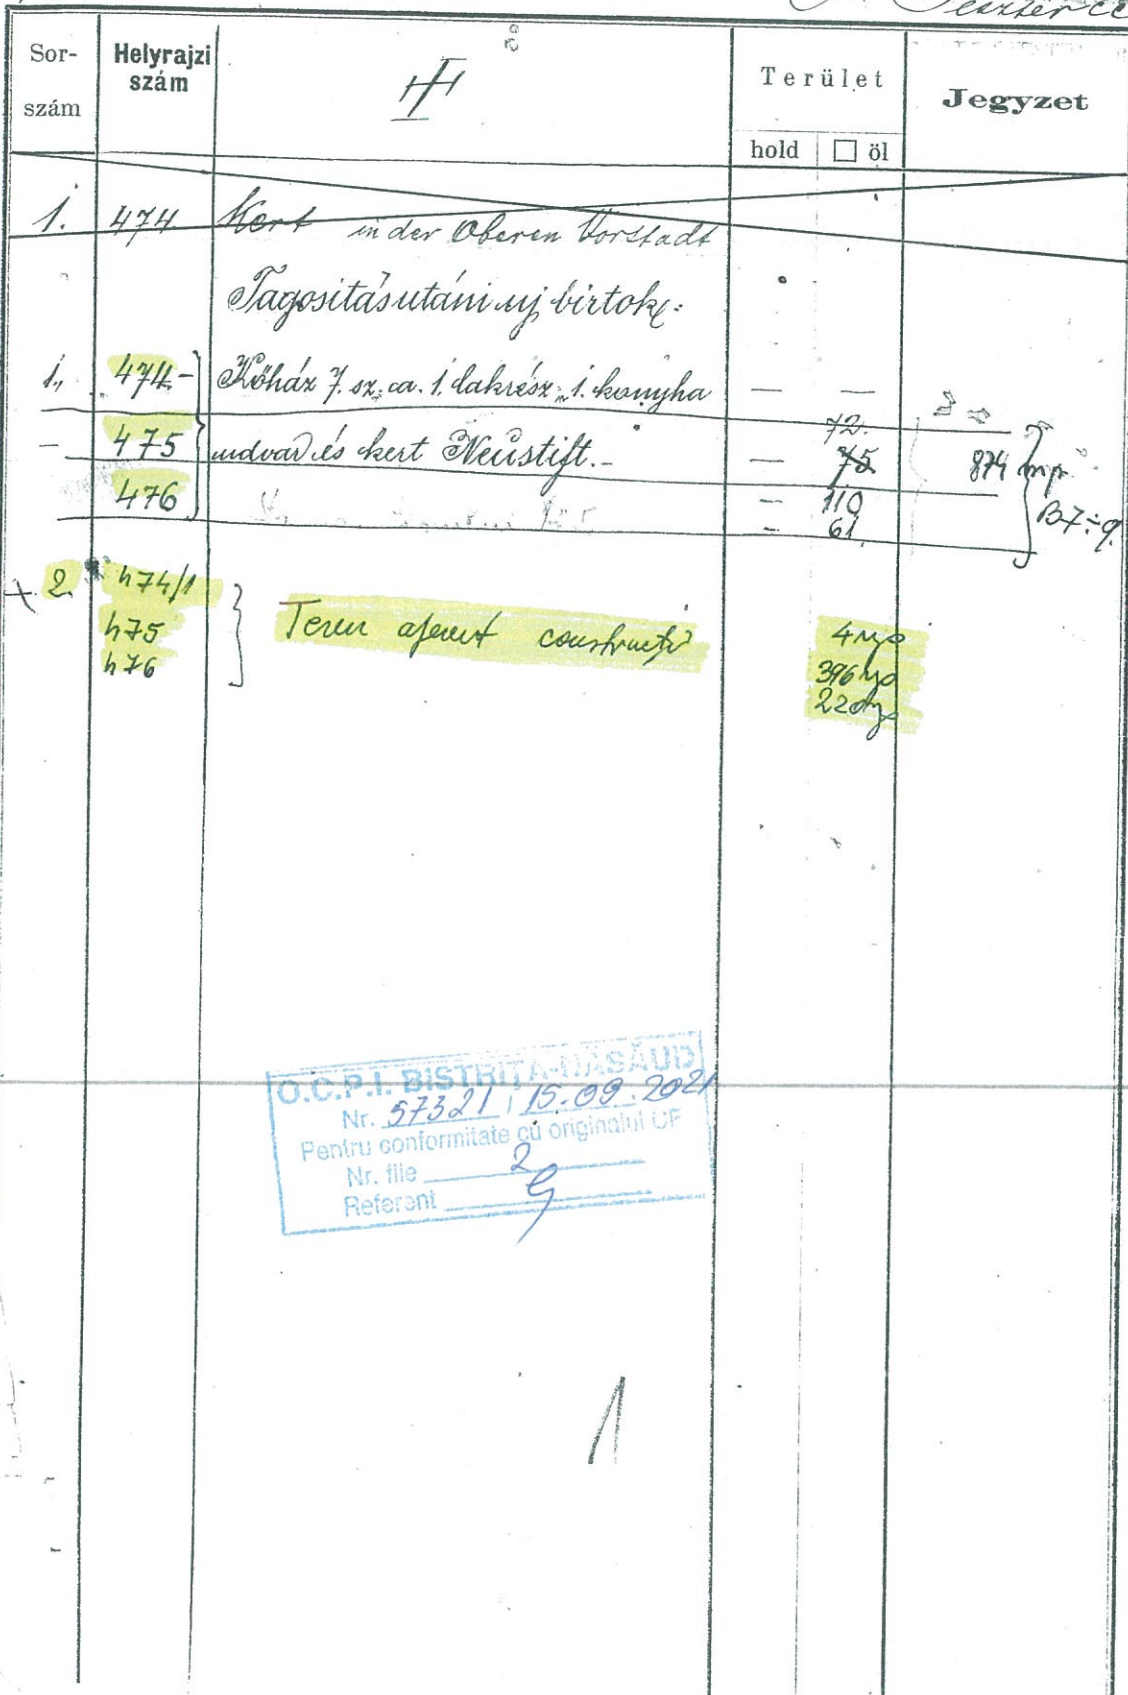 Sor-
szám
Helyrajzi
szám
II
Terület
hold □ öl
Jegyzet
1. 474. Kert in der Oberen Vorstadt
Tagositás utáni uj birtok:
1. 474- Kőház 7. sz. a. 1. lakrész, 1. konyha — —
72.
- 475 udvar és kert Neustift.- — 75 874 mp.
476 - 110
- 61 B7÷9.
+ 2. 474/1 4 mp
475 Teren aferent construcții 396 mp
476 220 mp
O.C.P.I. BISTRIȚA-NĂSĂUD
Nr. 57321 / 15.09.2021
Pentru conformitate cu originalul CF
Nr. file 2
Referent
1